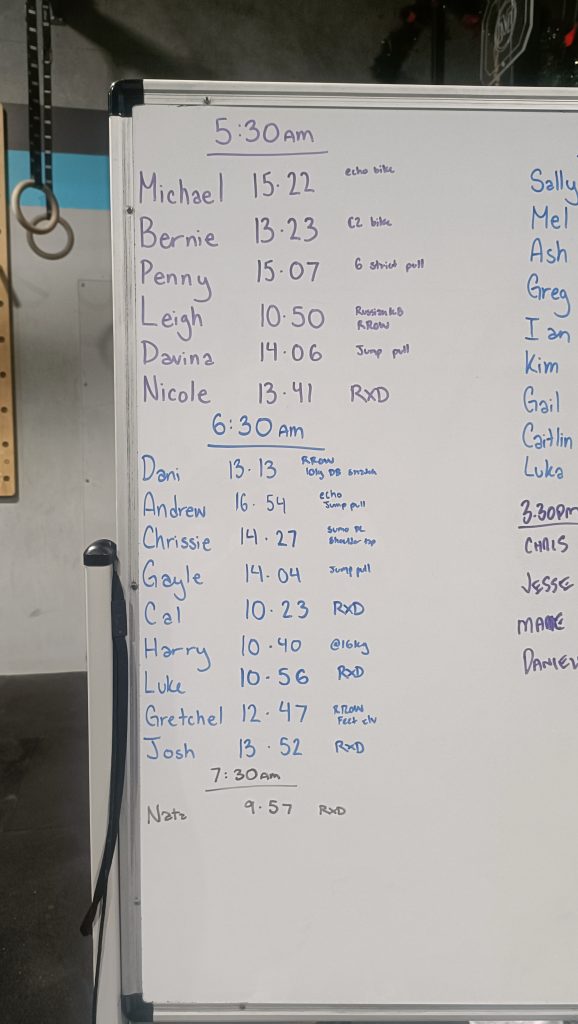 5:30AM
Michael 15.22 echo bike
Bernie 13.23 C2 bike
Penny 15.07 6 strict pull
Leigh 10.50 Russian KB
RROW
Davina 14.06 Jump pull
Nicole 13.41 RXD
6:30AM
Dani 13.13 RROW
10kg DB snatch
Andrew 16.54 echo
Jump pull
Chrissie 14.27 sumo DL
Shoulder tap
Gayle 14.04 Jump pull
Cal 10.23 RXD
Harry 10.40 @16kg
Luke 10.56 RXD
Gretchel 12.47 RROW
Feet elv
Josh 13.52 RXD
7:30AM
Nate 9.57 RXD
Sally
Mel
Ash
Greg
Ian
Kim
Gail
Caitlin
Luka
3.30pm
CHRIS
JESSE
DANIEL